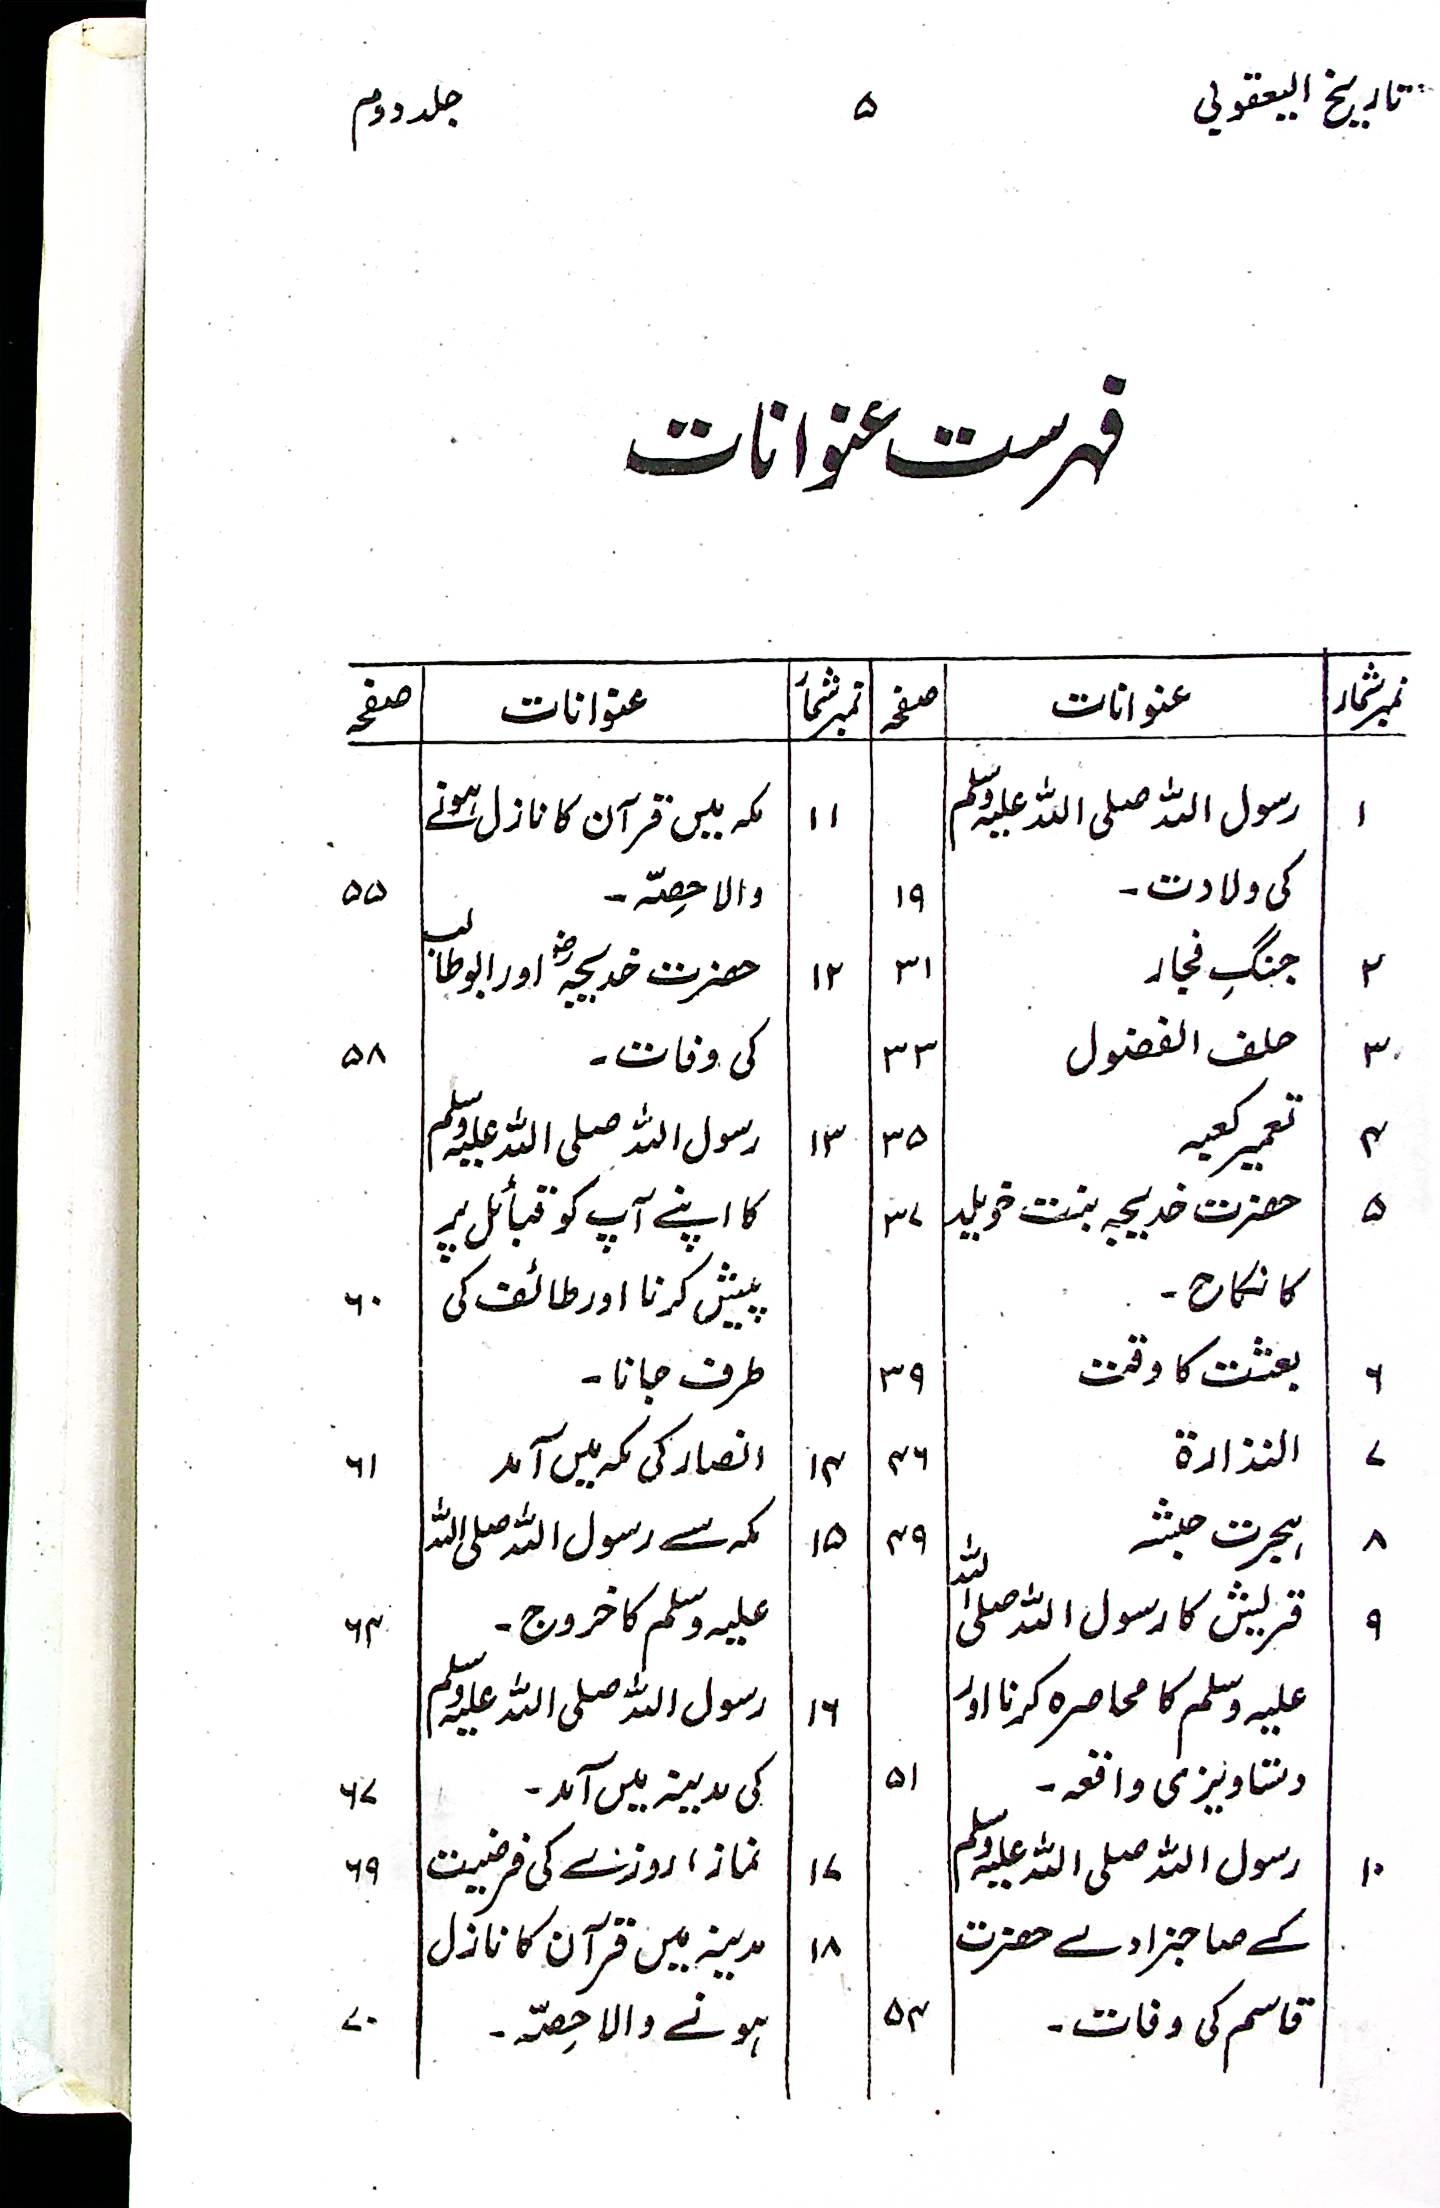 تاریخ الیعقوبی ۵ جلد دوم
فہرست عنوانات
نمبر شمار عنوانات صفحہ
۱ رسول اللہ صلی اللہ علیہ وسلم
کی ولادت۔ ۱۹
۲ جنگِ فجار ۳۱
۳ حلف الفضول ۳۳
۴ تعمیر کعبہ ۳۵
۵ حضرت خدیجہ بنت خویلد ۳۷
کا نکاح۔
۶ بعثت کا وقت ۳۹
۷ النذارۃ ۴۶
۸ ہجرت حبشہ ۴۹
۹ قریش کا رسول اللہ صلی اللہ
علیہ وسلم کا محاصرہ کرنا اور
دستاویزی واقعہ۔ ۵۱
۱۰ رسول اللہ صلی اللہ علیہ وسلم
کے صاحبزادے حضرت
قاسم کی وفات۔ ۵۴
نمبر شمار عنوانات صفحہ
۱۱ مکہ میں قرآن کا نازل ہونے
والا حِصّہ۔ ۵۵
۱۲ حضرت خدیجہؓ اور ابوطالب
کی وفات۔ ۵۸
۱۳ رسول اللہ صلی اللہ علیہ وسلم
کا اپنے آپ کو قبائل پر
پیش کرنا اور طائف کی ۶۰
طرف جانا۔
۱۴ انصار کی مکہ میں آمد ۶۱
۱۵ مکہ سے رسول اللہ صلی اللہ
علیہ وسلم کا خروج۔ ۶۴
۱۶ رسول اللہ صلی اللہ علیہ وسلم
کی مدینہ میں آمد۔ ۶۷
۱۷ نماز، روزے کی فرضیت ۶۹
۱۸ مدینہ میں قرآن کا نازل
ہونے والا حِصّہ۔ ۷۰